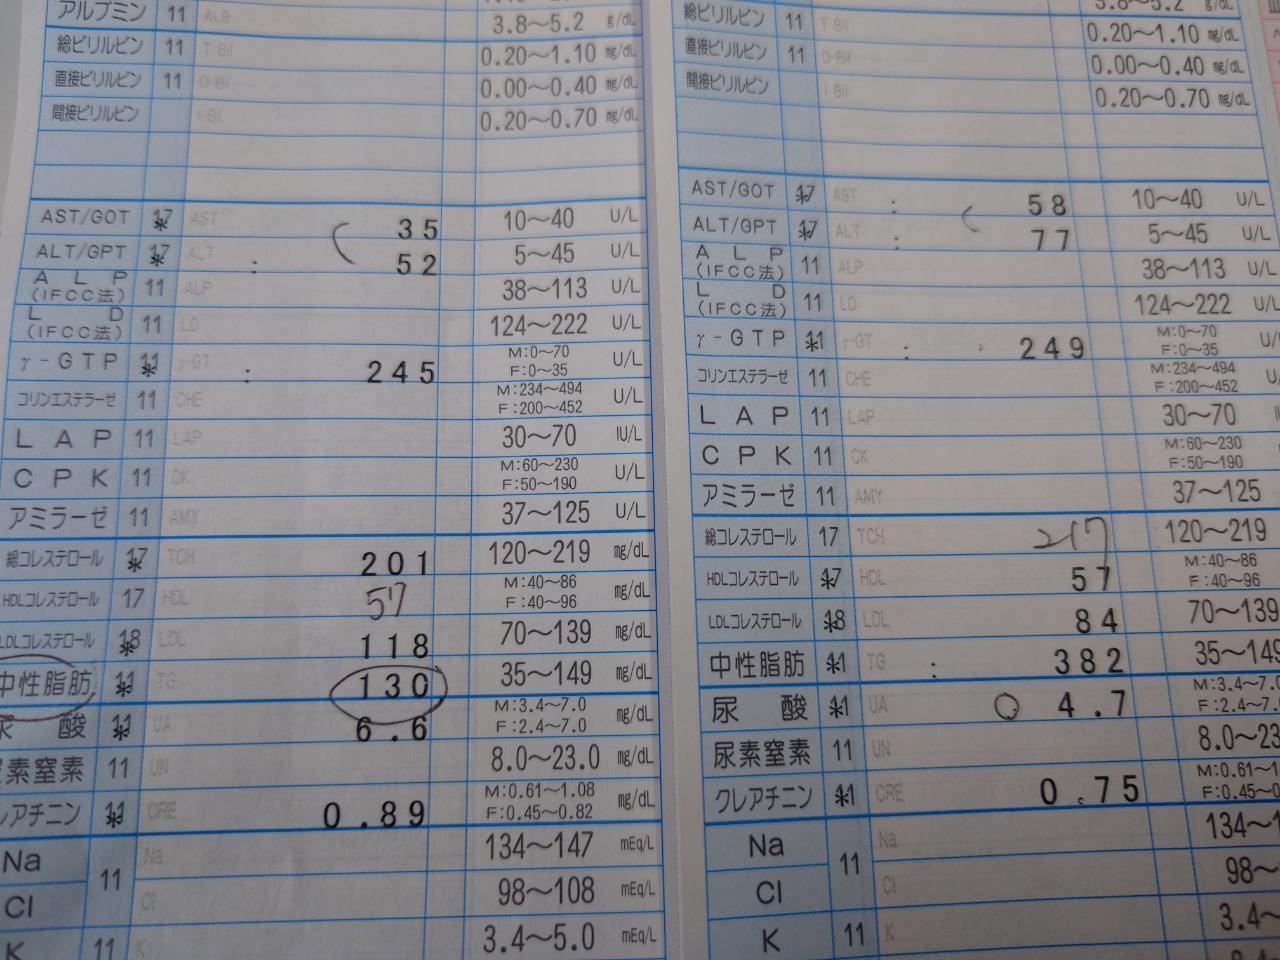 アルブミン 11 ALB 3.8～5.2 g/dL
総ビリルビン 11 T-Bil 0.20～1.10 mg/dL
直接ビリルビン 11 D-Bil 0.00～0.40 mg/dL
間接ビリルビン I-Bil 0.20～0.70 mg/dL
AST/GOT 17 * AST 35 10～40 U/L
ALT/GPT 17 * ALT : 52 5～45 U/L
ALP (IFCC法) 11 ALP 38～113 U/L
LD (IFCC法) 11 LD 124～222 U/L
γ-GTP 11 * γ-GT : 245 M:0～70 F:0～35 U/L
コリンエステラーゼ 11 CHE M:234～494 F:200～452 U/L
LAP 11 LAP 30～70 IU/L
CPK 11 CK M:60～230 F:50～190 U/L
アミラーゼ 11 AMY 37～125 U/L
総コレステロール 17 * TCH 201 120～219 mg/dL
HDLコレステロール 17 HDL 57 M:40～86 F:40～96 mg/dL
LDLコレステロール 18 * LDL 118 70～139 mg/dL
中性脂肪 11 * TG 130 35～149 mg/dL
尿酸 11 * UA 6.6 M:3.4～7.0 F:2.4～7.0 mg/dL
尿素窒素 11 UN 8.0～23.0 mg/dL
レアチニン 11 * CRE 0.89 M:0.61～1.08 F:0.45～0.82 mg/dL
Na 11 Na 134～147 mEq/L
Cl Cl 98～108 mEq/L
K 11 K 3.4～5.0 mEq/L
3.8～5.2 g/dL
総ビリルビン 11 T-Bil 0.20～1.10 mg/dL
直接ビリルビン 11 D-Bil 0.00～0.40 mg/dL
間接ビリルビン I-Bil 0.20～0.70 mg/dL
AST/GOT *17 AST : 58 10～40 U/L
ALT/GPT *17 ALT : 77 5～45 U/L
ALP (IFCC法) 11 ALP 38～113 U/L
LD (IFCC法) 11 LD 124～222 U/L
γ-GTP *11 γ-GT : 249 M:0～70 F:0～35 U/
コリンエステラーゼ 11 CHE M:234～494 F:200～452 U/
LAP 11 LAP 30～70
CPK 11 CK M:60～230 F:50～190
アミラーゼ 11 AMY 37～125
総コレステロール 17 TCH 217 120～219
HDLコレステロール *17 HDL 57 M:40～86 F:40～96
LDLコレステロール *18 LDL 84 70～139
中性脂肪 *11 TG : 382 35～149
尿酸 *11 UA 4.7 M:3.4～7.0 F:2.4～7.0
尿素窒素 11 UN 8.0～23
クレアチニン *11 CRE 0.75 M:0.61～1 F:0.45～0
Na 11 Na 134～1
Cl Cl 98～
K 11 K 3.4～